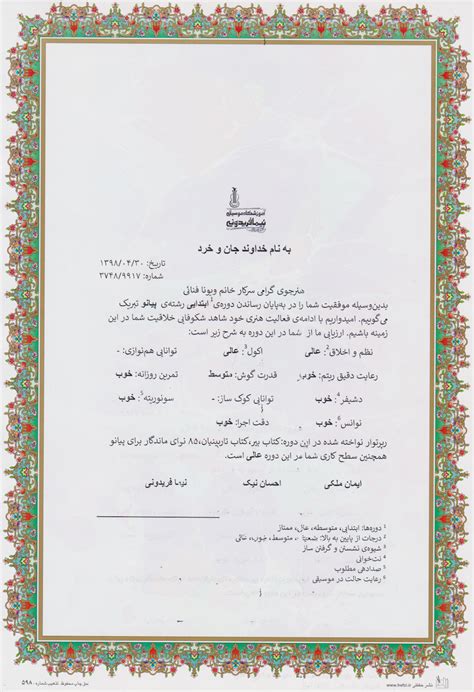 آموزشگاه موسیقی
نیما فریدونی
به نام خداوند جان و خرد
تاریخ: ۱۳۹۸/۰۴/۳۰
شماره: ۳۷۴۸/۹۹۱۷
هنرجوی گرامی سرکار خانم ویونا فنائی
بدین‌وسیله موفقیت شما را در به‌پایان رساندن دوره‌ی¹ ابتدایی رشته‌ی پیانو تبریک
می‌گوییم. امیدواریم با ادامه‌ی فعالیت هنری خود شاهد شکوفایی خلاقیت شما در این
زمینه باشیم. ارزیابی ما از شما در این دوره به شرح زیر است:
نظم و اخلاق²: عالی اکول³: عالی توانایی هم‌نوازی: -
رعایت دقیق ریتم: خوب قدرت گوش: متوسط تمرین روزانه: خوب
دشیفر⁴: خوب توانایی کوک ساز: - سونوریته⁵: خوب
نوانس⁶: خوب دقت اجرا: خوب
رپرتوار نواخته شده در این دوره: کتاب بیر، کتاب تاربینیان، ۸۵ نوای ماندگار برای پیانو
همچنین سطح کاری شما در این دوره عالی است.
ایمان ملکی احسان نیک نیما فریدونی
¹ دوره‌ها: ابتدایی، متوسطه، عالی، ممتاز
² درجات از پایین به بالا: ضعیف، متوسط، خوب، عالی
³ شیوه‌ی نشستن و گرفتن ساز
⁴ نت‌خوانی
⁵ صدادهی مطلوب
⁶ رعایت حالت در موسیقی
حق چاپ محفوظ. تذهیب شماره ۵۹۸۰ www.hafiz.ir